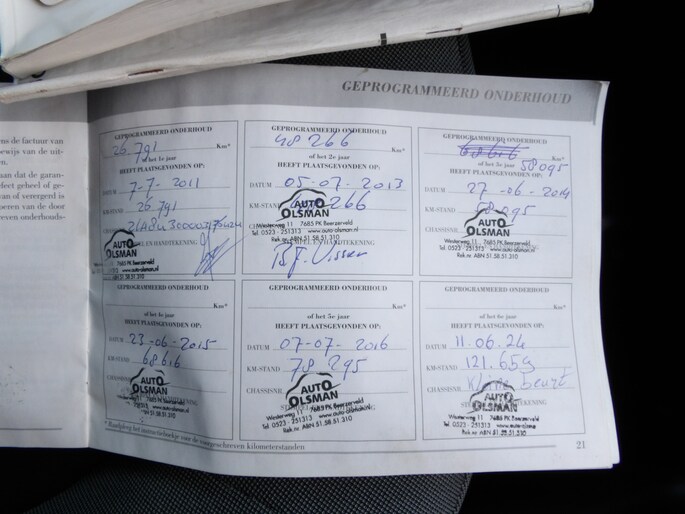 ens de factuur van
ewijs van de uit-
en.
aan dat de garan-
fect geheel of ge-
van of verergerd is
oeren van de door
even onderhouds-
GEPROGRAMMEERD ONDERHOUD
GEPROGRAMMEERD ONDERHOUD
26.791 Km*
of het 1e jaar
HEEFT PLAATSGEVONDEN OP:
DATUM 7-7-2011
KM-STAND 26.791
AUTO OLSMAN
7685 PK Beerzerveld
www.auto-olsman.nl
ABN 51.58.51.310
GEPROGRAMMEERD ONDERHOUD
48 266 Km*
of het 2e jaar
HEEFT PLAATSGEVONDEN OP:
DATUM 05-07-2013
KM-STAND 266
AUTO OLSMAN
Westerweg 11 7685 PK Beerzerveld
Tel. 0523 - 251313 www.auto-olsman.nl
Rek.nr. ABN 51.58.51.310
STEMPEL EN HANDTEKENING
GEPROGRAMMEERD ONDERHOUD
68616 Km*
of het 3e jaar 58095
HEEFT PLAATSGEVONDEN OP:
DATUM 27-06-2014
KM-STAND 58095
CHASSISNR.
AUTO OLSMAN
Westerweg 11 7685 PK Beerzerveld
Tel. 0523 - 251313 www.auto-olsman.nl
Rek.nr. ABN 51.58.51.310
GEPROGRAMMEERD ONDERHOUD
Km*
of het 4e jaar
HEEFT PLAATSGEVONDEN OP:
DATUM 23-06-2015
KM-STAND 68.616
CHASSISNR.
AUTO OLSMAN
7685 PK Beerzerveld
www.auto-olsman.nl
ABN 51.58.51.310
GEPROGRAMMEERD ONDERHOUD
Km*
of het 5e jaar
HEEFT PLAATSGEVONDEN OP:
DATUM 07-07-2016
KM-STAND 78 295
CHASSISNR.
AUTO OLSMAN
Westerweg 11 7685 PK Beerzerveld
Tel. 0523 - 251313 www.auto-olsman.nl
Rek.nr. ABN 51.58.51.310
GEPROGRAMMEERD ONDERHOUD
Km*
of het 6e jaar
HEEFT PLAATSGEVONDEN OP:
DATUM 11.06.24
KM-STAND 121.659
CHASSISNR. Kleine beurt
AUTO OLSMAN
Westerweg 11 7685 PK Beerzerveld
Tel. 0523 - 251313 www.auto-olsman
Rek.nr. ABN 51.58.51.310
* Raadpleeg het instructieboekje voor de voorgeschreven kilometerstanden
21